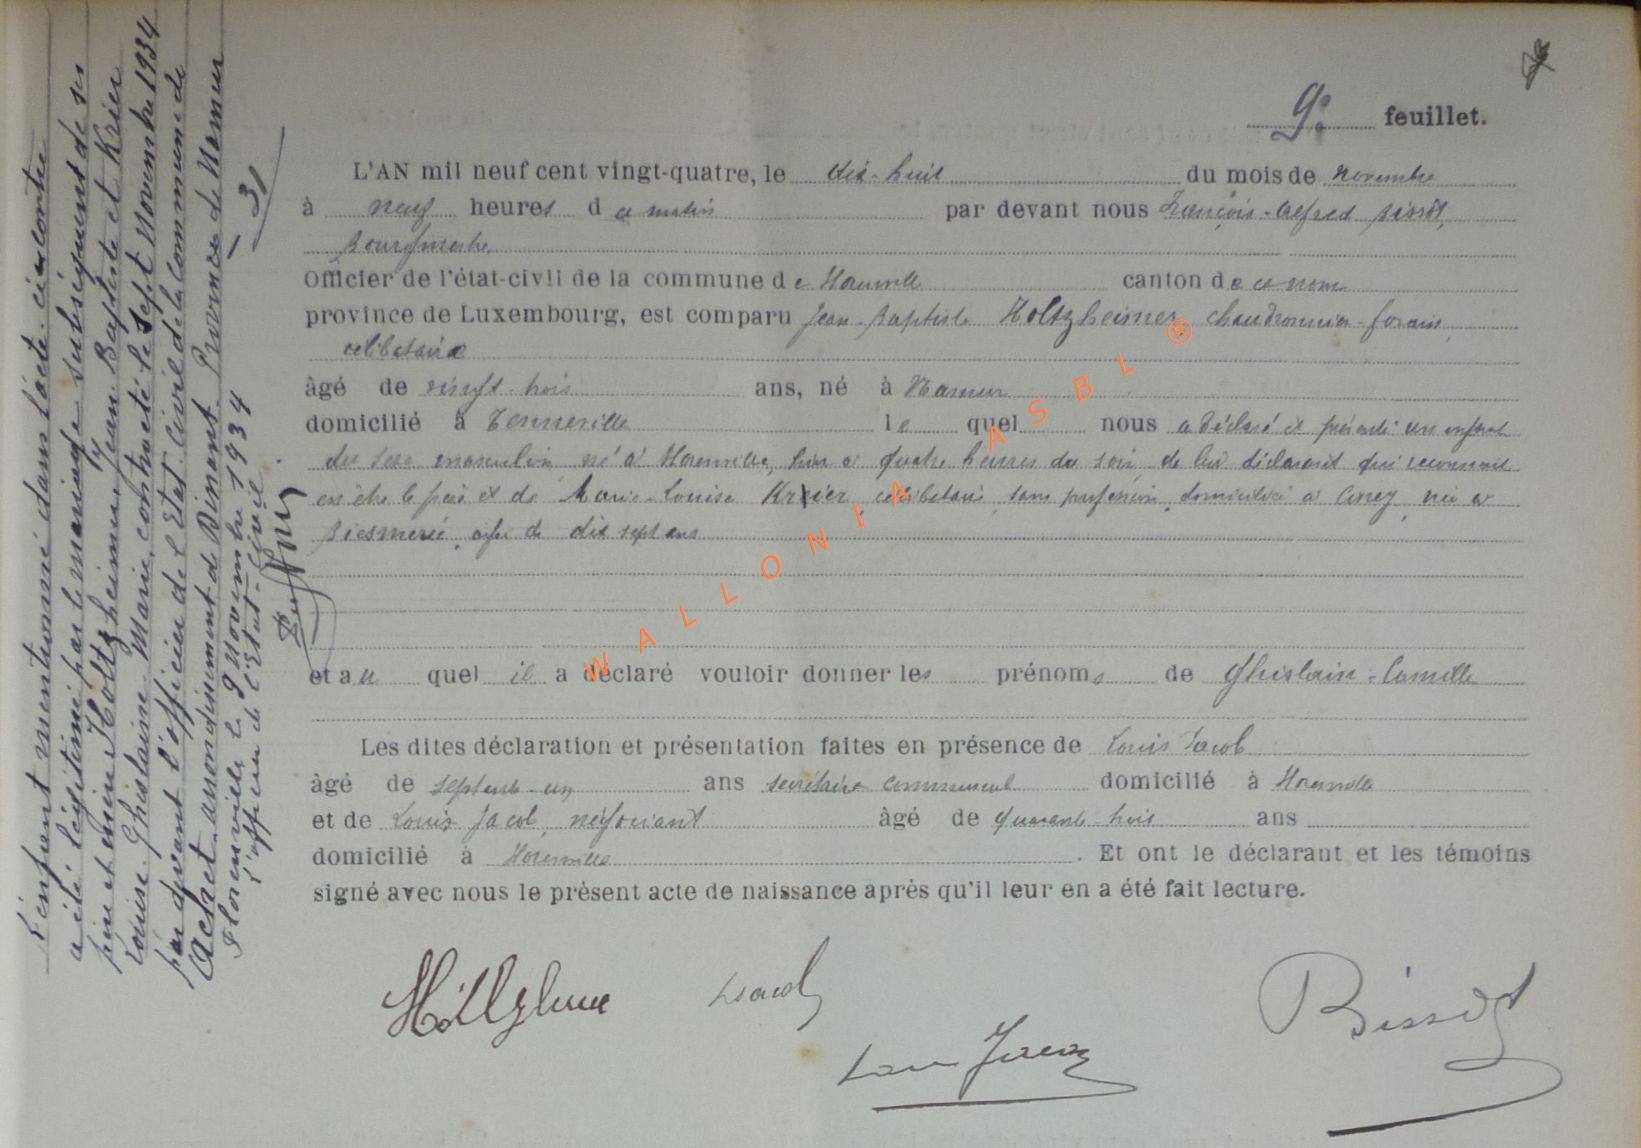 9e feuillet.
L'AN mil neuf cent vingt-quatre, le dix-huit du mois de novembre
à neuf heures du matin par devant nous François-Alfred Bissot,
Bourgmestre
Officier de l'état-civil de la commune de canton de ce nom
province de Luxembourg, est comparu Jean-Baptiste Holtzheimer chaudronnier-forain,
célibataire
âgé de vingt-trois ans, né à Namur
domicilié à Tenneville lequel nous a déclaré et présenté un enfant
du sexe masculin, né à hier à quatre heures du soir, de lui déclarant qui reconnait
en être le père et de Marie-Louise Krier, célibataire, sans profession, domiciliée à Ciney, née à
Biesmerée, âgée de dix sept ans
et au quel il a déclaré vouloir donner les prénoms de Ghislain-Camille
Les dites déclaration et présentation faites en présence de Louis Jacob
âgé de septante-un ans secrétaire communal domicilié à
et de Louis Jacob, négociant âgé de quarante-trois ans
domicilié à . Et ont le déclarant et les témoins
signé avec nous le présent acte de naissance après qu'il leur en a été fait lecture.
Bissot
L'enfant mentionné dans l'acte ci-contre
a été légitimé par le mariage subséquent de ses
père et mère Holtzheimer Jean-Baptiste et Krier
Louise Ghislaine Marie, contracté le sept Novembre 1934
par devant l'officier de l'Etat Civil de la commune de
Achet arrondissement de Dinant Province de Namur
le 9 Novembre 1934
L'officier de l'Etat-Civil.
WALLONIA ASBL ®